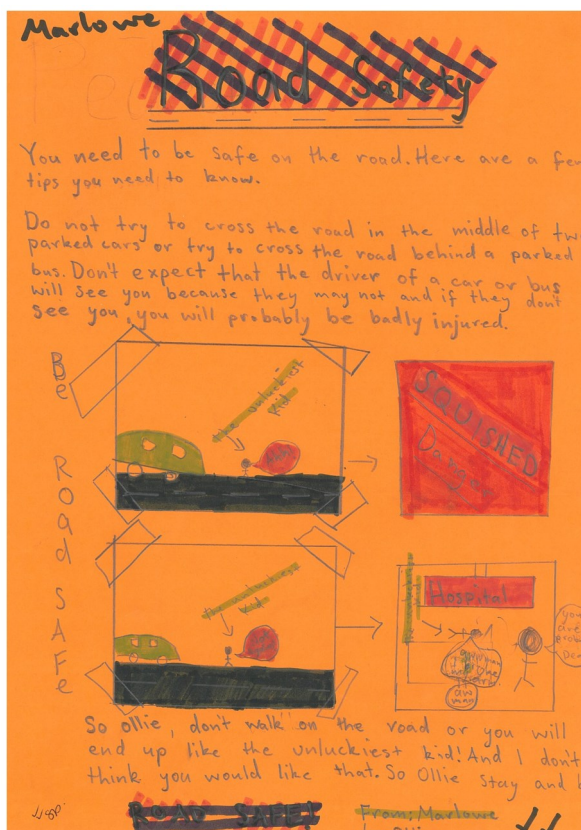 Marlowe
Road Safety
You need to be safe on the road. Here are a few
tips you need to know.
Do not try to cross the road in the middle of tw
parked cars or try to cross the road behind a parked
bus. Don't expect that the driver of a car or bus
will see you because they may not and if they don't
see you, you will probably be badly injured.
Be ROad SAFe
the unluckiest
kid
SQUISHED
Danger
Hospital
you
are
prob
Dea
So Ollie, don't walk on the road or you will
end up like the unluckiest kid! And I don't
think you would like that. So Ollie stay and b
ROAD SAFE!
From: Marlowe